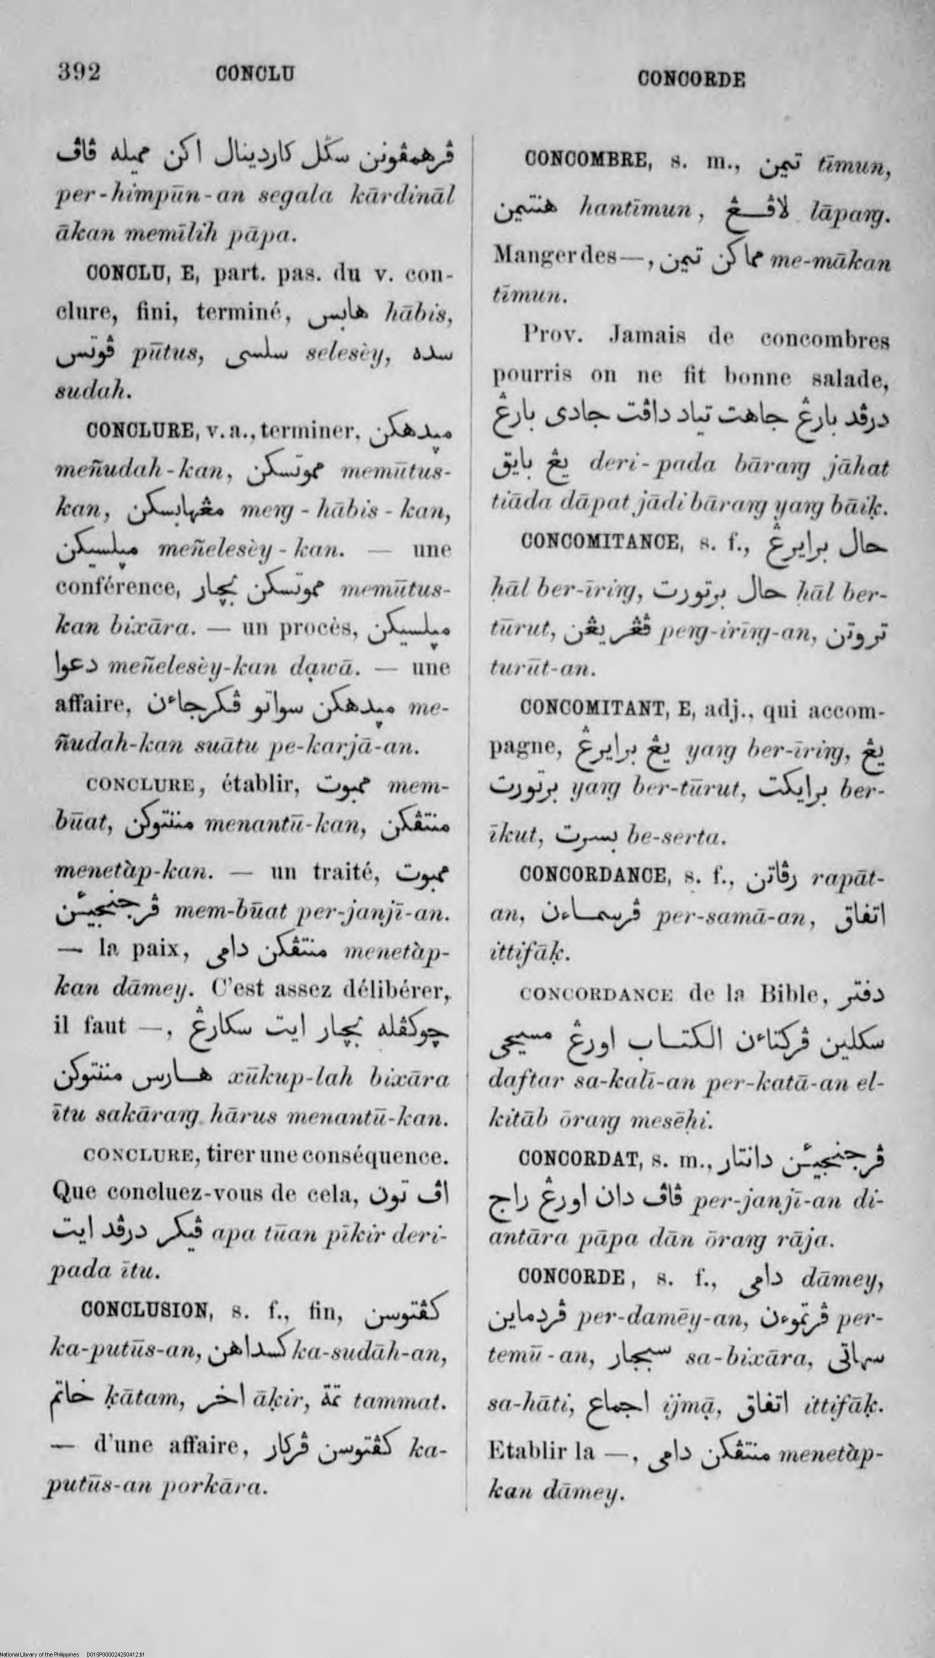 392 CONCLU
CONCORDE
ڤرهمڤونن سݢل كاردينال اكن مميله ڤاڤ
per-himpūn-an segala kārdināl
ākan memīlih pāpa.
CONCLU, E, part. pas. du v. con-
clure, fini, terminé, هابس hābis,
ڤوتس pūtus, سلسى selesèy, سده
sudah.
CONCLURE, v. a., terminer, مپدهكن
meñudah-kan, مموتسكن memūtus-
kan, مڠهابسكن meng-hābis-kan,
مپلسيكن meñelesèy-kan. — une
conférence, مموتسكن بچار memūtus-
kan bixāra. — un procès, مپلسيكن
دعوا meñelesèy-kan dạwā. — une
affaire, مپدهكن سواتو ڤكرجاءن me-
ñudah-kan suātu pe-karjā-an.
CONCLURE, établir, ممبوت mem-
būat, مننتوكن menantū-kan, منتڤكن
menetàp-kan. — un traité, ممبوت
ڤرجنجيئن mem-būat per-janjī-an.
— la paix, منتڤكن دامى menetàp-
kan dāmey. C'est assez délibérer,
il faut —, چوكڤله بچار ايت سكارڠ
هارس مننتوكن xūkup-lah bixāra
ītu sakārang hārus menantū-kan.
CONCLURE, tirer une conséquence.
Que concluez-vous de cela, اڤ تون
ڤيكر درڤد ايت apa tūan pīkir deri-
pada ītu.
CONCLUSION, s. f., fin, كڤتوسن
ka-putūs-an, كسداهن ka-sudāh-an,
خاتم ḳātam, اخر āḳir, تمة tammat.
— d'une affaire, كڤتوسن ڤركار ka-
putūs-an porkāra.
CONCOMBRE, s. m., تيمن tīmun,
هنتيمن hantīmun, لاڤڠ lāpang.
Manger des —, مماكن تيمن me-mākan
tīmun.
Prov. Jamais de concombres
pourris on ne fit bonne salade,
درڤد بارڠ جاهت تياد داڤت جادى بارڠ
يڠ بايق deri-pada bārang jāhat
tiāda dāpat jādi bārang yang bāiḳ.
CONCOMITANCE, s. f., حال برايرڠ
ḥāl ber-īring, حال برتورت ḥāl ber-
tūrut, ڤڠريڠن peng-irīng-an, تروتن
turūt-an.
CONCOMITANT, E, adj., qui accom-
pagne, يڠ برايرڠ yang ber-īring, يڠ
برتورت yang ber-tūrut, برايكت ber-
īkut, بسرت be-serta.
CONCORDANCE, s. f., رڤاتن rapāt-
an, ڤرسماءن per-samā-an, اتفاق
ittifāḳ.
CONCORDANCE de la Bible, دفتر
سكلين ڤركتاءن الكتاب اورڠ مسيحى
daftar sa-kalī-an per-katā-an el-
kitāb ōrang mesēḥi.
CONCORDAT, s. m., ڤرجنجيئن دانتار
ڤاڤ دان اورڠ راج per-janjī-an di-
antāra pāpa dān ōrang rāja.
CONCORDE, s. f., دامى dāmey,
ڤردماين per-damēy-an, ڤرتموءن per-
temū-an, سبچار sa-bixāra, سهاتى
sa-hāti, اجماع ijmạ̄, اتفاق ittifāḳ.
Etablir la —, منتڤكن دامى menetàp-
kan dāmey.
National Library of the Philippines